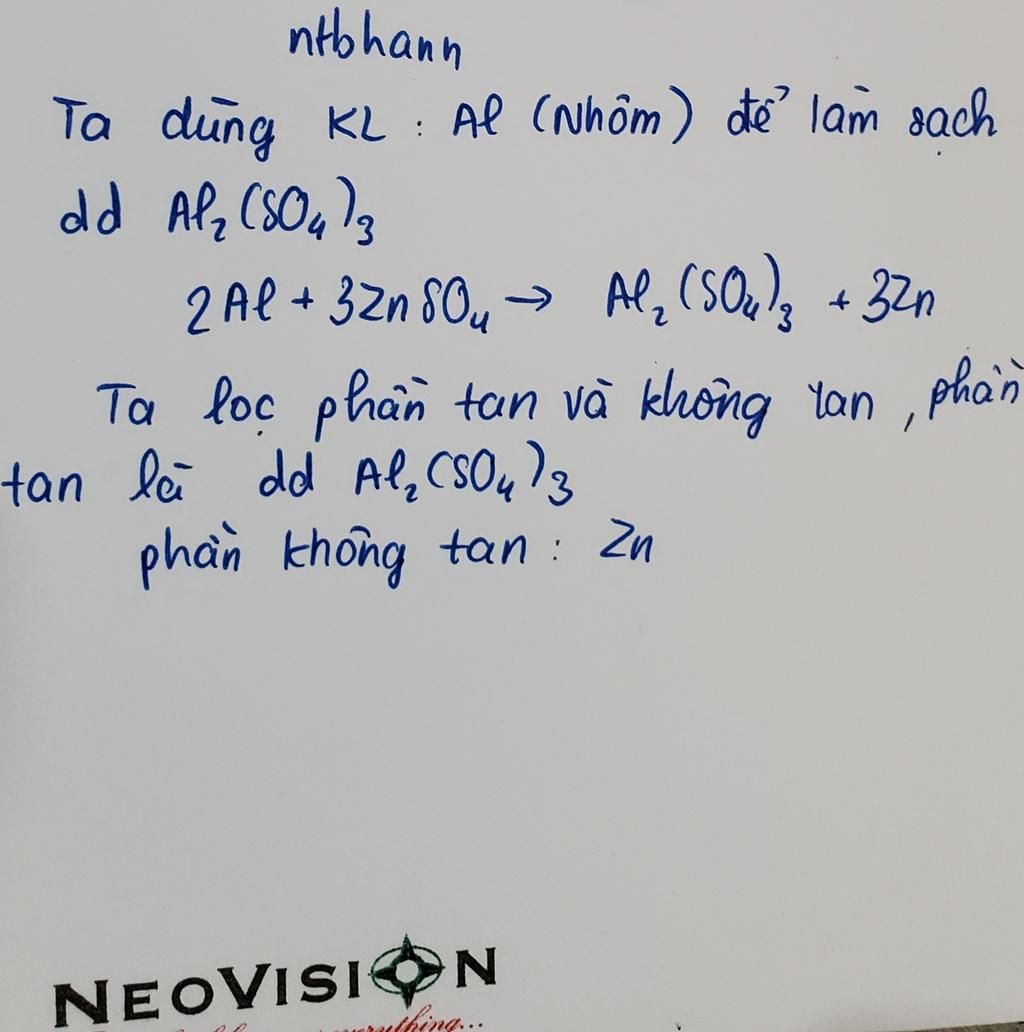 ntbhann
Ta dùng KL : Al (Nhôm) để làm sạch
dd Al₂(SO₄)₃
2Al + 3ZnSO₄ → Al₂(SO₄)₃ + 3Zn
Ta lọc phần tan và không tan, phần
tan là dd Al₂(SO₄)₃
phần không tan : Zn
NEOVISION
everything...